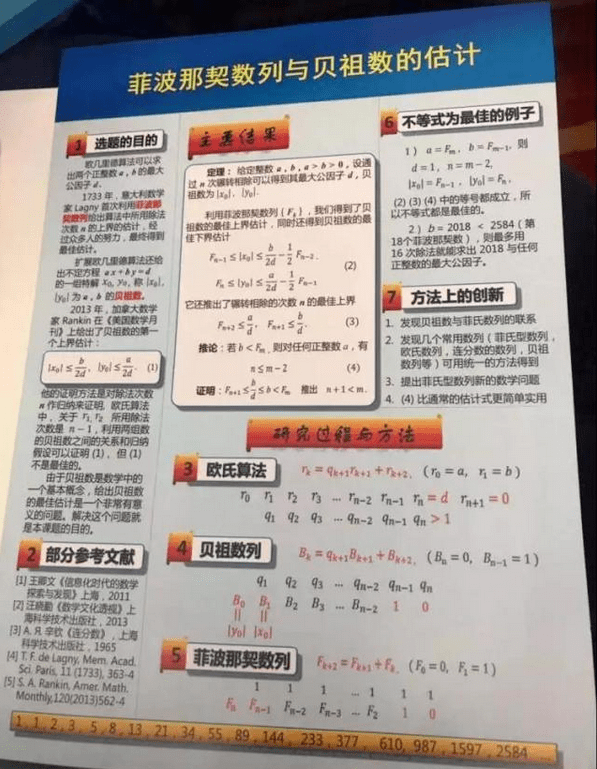 菲波那契数列与贝祖数的估计
1 选题的目的
欧几里德算法可以求
出两个正整数 a,b 的最大
公因子 d.
1733 年,意大利数学
家 Lagny 首次利用菲波那
契数列给出算法中所用除法
次数 n 的上界的估计,经
过众多人的努力,最终得到
最佳估计。
扩展欧几里德算法还给
出不定方程 ax+by=d
的一组特解 x₀, y₀, 称 |x₀|,
|y₀| 为 a,b 的贝祖数。
2013 年,加拿大数学
家 Rankin 在《美国数学月
刊》上给出了贝祖数的第一
个上界估计:
|x₀| ≤ b/2d, |y₀| ≤ a/2d. (1)
他的证明方法是对除法次数
n 作归纳来证明, 欧氏算法
中,关于 r₁, r₂ 所用除法
次数是 n−1,利用两组数
的贝祖数之间的关系和归纳
假设可以证明 (1)、但 (1)
不是最佳的。
由于贝祖数是数学中的
一个基本概念,给出贝祖数
的最佳估计是一个非常有意
义的问题。解决这个问题就
是本课题的目的。
2 部分参考文献
[1] 王卿文《信息化时代的数学
探索与发现》上海,2011
[2] 汪晓勤《数学文化透视》上
海科学技术出版社,2013
[3] А. Я. 辛钦《连分数》,上海
科学技术出版社,1965
[4] T. F. de Lagny, Mem. Acad.
Sci. Paris, 11 (1733), 363-4
[5] S. A. Rankin, Amer. Math.
Monthly,120(2013)562-4
主要结果
定理: 给定整数 a, b, a > b > 0, 设通
过 n 次辗转相除可以得到其最大公因子 d, 贝
祖数为 |x₀|, |y₀|.
利用菲波那契数列 {Fₖ},我们得到了贝
祖数的最佳上界估计,同时还得到贝祖数的最
佳下界估计
Fₙ₋₁ ≤ |x₀| ≤ b/2d − 1/2 Fₙ₋₂.
(2)
Fₙ ≤ |y₀| ≤ a/2d − 1/2 Fₙ₋₁
它还推出了辗转相除的次数 n 的最佳上界
Fₙ₊₂ ≤ a/d, Fₙ₊₁ ≤ b/d. (3)
推论: 若 b < Fₘ, 则对任何正整数 a, 有
n ≤ m−2 (4)
证明: Fₙ₊₁ ≤ b/d ≤ b < Fₘ 推出 n+1 < m.
6 不等式为最佳的例子
1) a = Fₘ, b = Fₘ₋₁, 则
d = 1, n = m−2,
|x₀| = Fₙ₋₁, |y₀| = Fₙ,
(2) (3) (4) 中的等号都成立,所
以不等式都是最佳的。
2) b = 2018 < 2584 (第
18个菲波那契数),则最多用
16 次除法就能求出 2018 与任何
正整数的最大公因子。
7 方法上的创新
1. 发现贝祖数与菲氏数列的联系
2. 发现几个常用数列(菲氏型数列,
欧氏数列,连分数的数列,贝祖
数列等)可用统一的方法得到
3. 提出菲氏型数列新的数学问题
4. (4) 比通常的估计式更简单实用
研究过程与方法
3 欧氏算法 rₖ = qₖ₊₁rₖ₊₁ + rₖ₊₂, (r₀ = a, r₁ = b)
r₀ r₁ r₂ r₃ ... rₙ₋₂ rₙ₋₁ rₙ = d rₙ₊₁ = 0
q₁ q₂ q₃ ... qₙ₋₂ qₙ₋₁ qₙ > 1
4 贝祖数列 Bₖ = qₖ₊₁Bₖ₊₁ + Bₖ₊₂, (Bₙ = 0, Bₙ₋₁ = 1)
q₁ q₂ q₃ ... qₙ₋₂ qₙ₋₁ qₙ
B₀ B₁ B₂ B₃ ... Bₙ₋₂ 1 0
|| ||
|y₀| |x₀|
5 菲波那契数列 Fₖ₊₂ = Fₖ₊₁ + Fₖ, (F₀ = 0, F₁ = 1)
1 1 1 ... 1 1 1
Fₙ Fₙ₋₁ Fₙ₋₂ Fₙ₋₃ ... F₂ 1 0
1, 1, 2, 3, 5, 8, 13, 21, 34, 55, 89, 144, 233, 377, 610, 987, 1597, 2584 ...